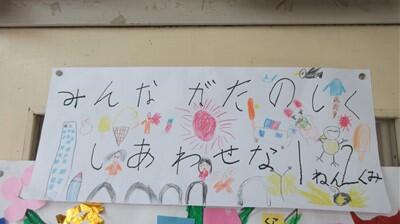 みんながたのしく
しあわせな1ねん2くみ